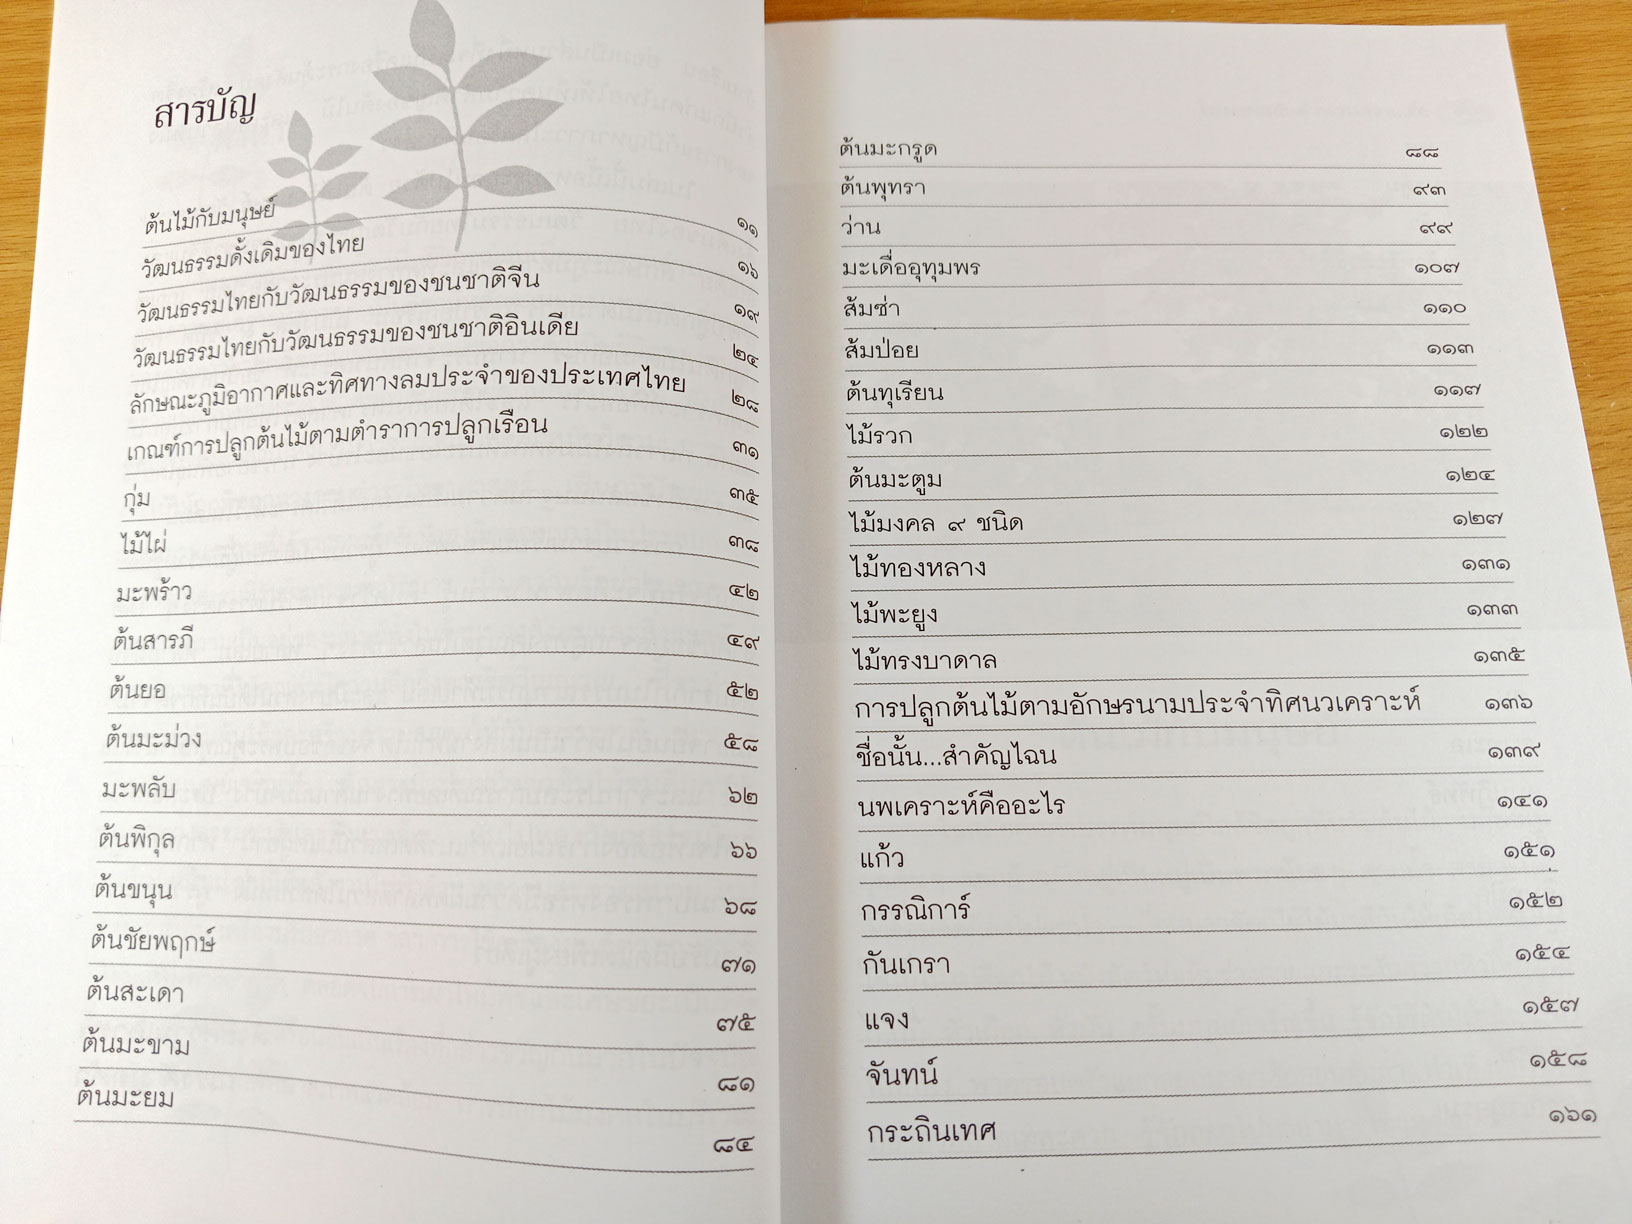 สารบัญ
ต้นไม้กับมนุษย์ ๑๑
วัฒนธรรมดั้งเดิมของไทย ๑๖
วัฒนธรรมไทยกับวัฒนธรรมของชนชาติจีน ๑๙
วัฒนธรรมไทยกับวัฒนธรรมของชนชาติอินเดีย ๒๔
ลักษณะภูมิอากาศและทิศทางลมประจำของประเทศไทย ๒๘
เกณฑ์การปลูกต้นไม้ตามตำราการปลูกเรือน ๓๑
กุ่ม ๓๕
ไม้ไผ่ ๓๘
มะพร้าว ๔๒
ต้นสารภี ๔๙
ต้นยอ ๕๒
ต้นมะม่วง ๕๘
มะพลับ ๖๒
ต้นพิกุล ๖๖
ต้นขนุน ๖๘
ต้นชัยพฤกษ์ ๗๑
ต้นสะเดา ๗๕
ต้นมะขาม ๘๑
ต้นมะยม ๘๔
ต้นมะกรูด ๘๘
ต้นพุทรา ๙๓
ว่าน ๙๙
มะเดื่ออุทุมพร ๑๐๗
ส้มซ่า ๑๑๐
ส้มป่อย ๑๑๓
ต้นทุเรียน ๑๑๗
ไม้รวก ๑๒๒
ต้นมะตูม ๑๒๔
ไม้มงคล ๙ ชนิด ๑๒๗
ไม้ทองหลาง ๑๓๑
ไม้พะยูง ๑๓๓
ไม้ทรงบาดาล ๑๓๕
การปลูกต้นไม้ตามอักษรนามประจำทิศนวเคราะห์ ๑๓๖
ชื่อนั้น...สำคัญไฉน ๑๓๙
นพเคราะห์คืออะไร ๑๔๑
แก้ว ๑๕๑
กรรณิการ์ ๑๕๒
กันเกรา ๑๕๔
แจง ๑๕๗
จันทน์ ๑๕๘
กระถินเทศ ๑๖๑